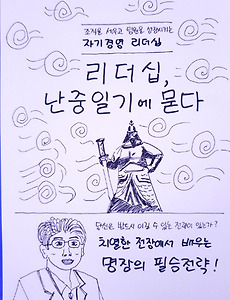 조직을 세우고 팀원을 성장시키는
자기경영 리더십
리더십,
난중일기에 묻다
당신은 반드시 이길 수 있는 전략이 있는가?
치열한 전장에서 배우는
명장의 필승전략!